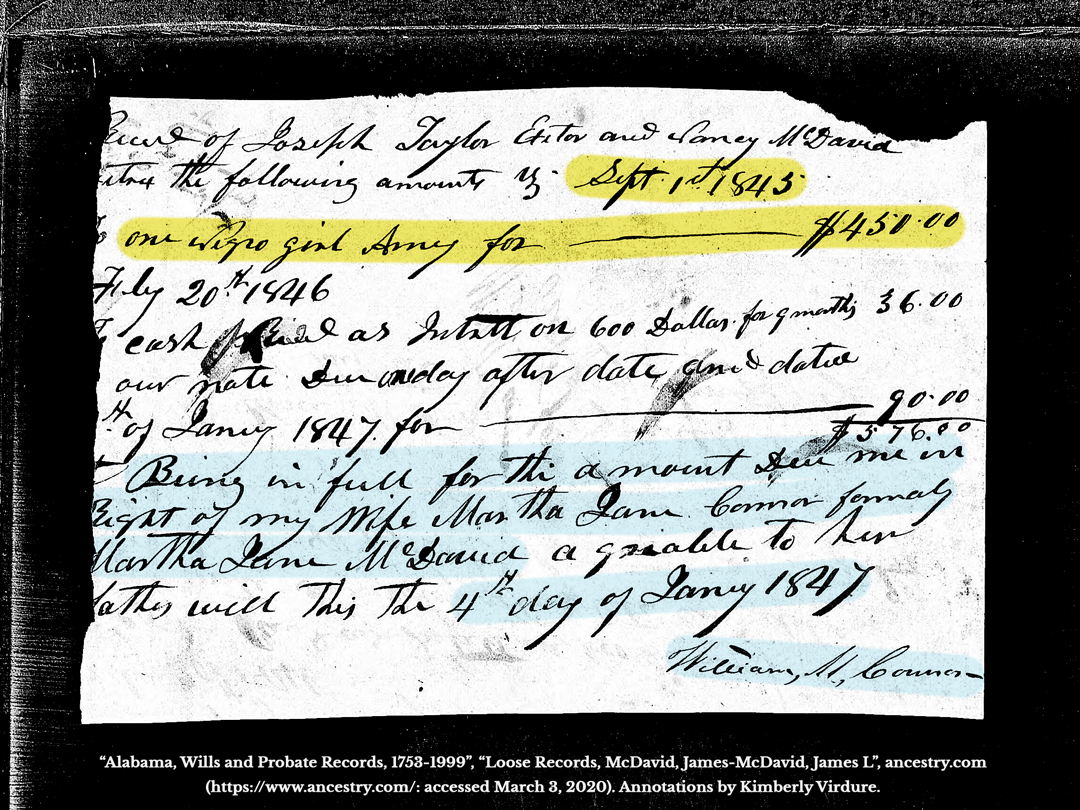 Recd of Joseph Taylor Extor and Nancy McDavid
extrx the following amounts viz Sept 1st 1845
To one Negro girl Amey for $450.00
Feby 20th 1846
To cash Recd as Intrstt on 600 Dollars for 9 months 36.00
our note Due oneday after date and dated
4th of Janey 1847 for 90.00
$576.00
Being in full for the amount Due me in
Right of my Wife Martha Jane Connor formaly
Martha Jane McDavid a greable to her
father will this the 4th day of Janey 1847
William, M, Connor
“Alabama, Wills and Probate Records, 1753-1999”, “Loose Records, McDavid, James-McDavid, James L”, ancestry.com
(https://www.ancestry.com/: accessed March 3, 2020). Annotations by Kimberly Virdure.